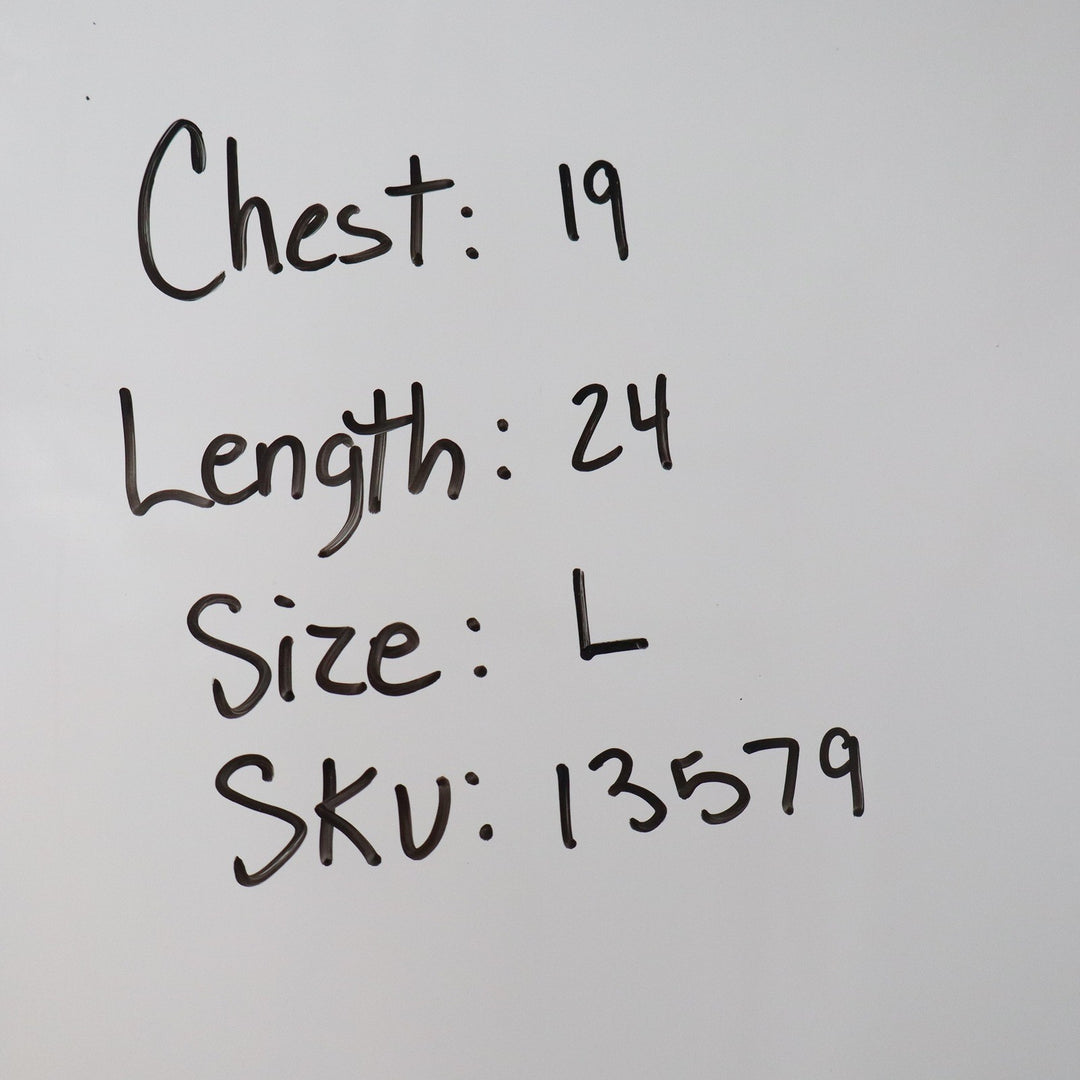 Chest: 19
Length: 24
Size: L
SKU: 13579